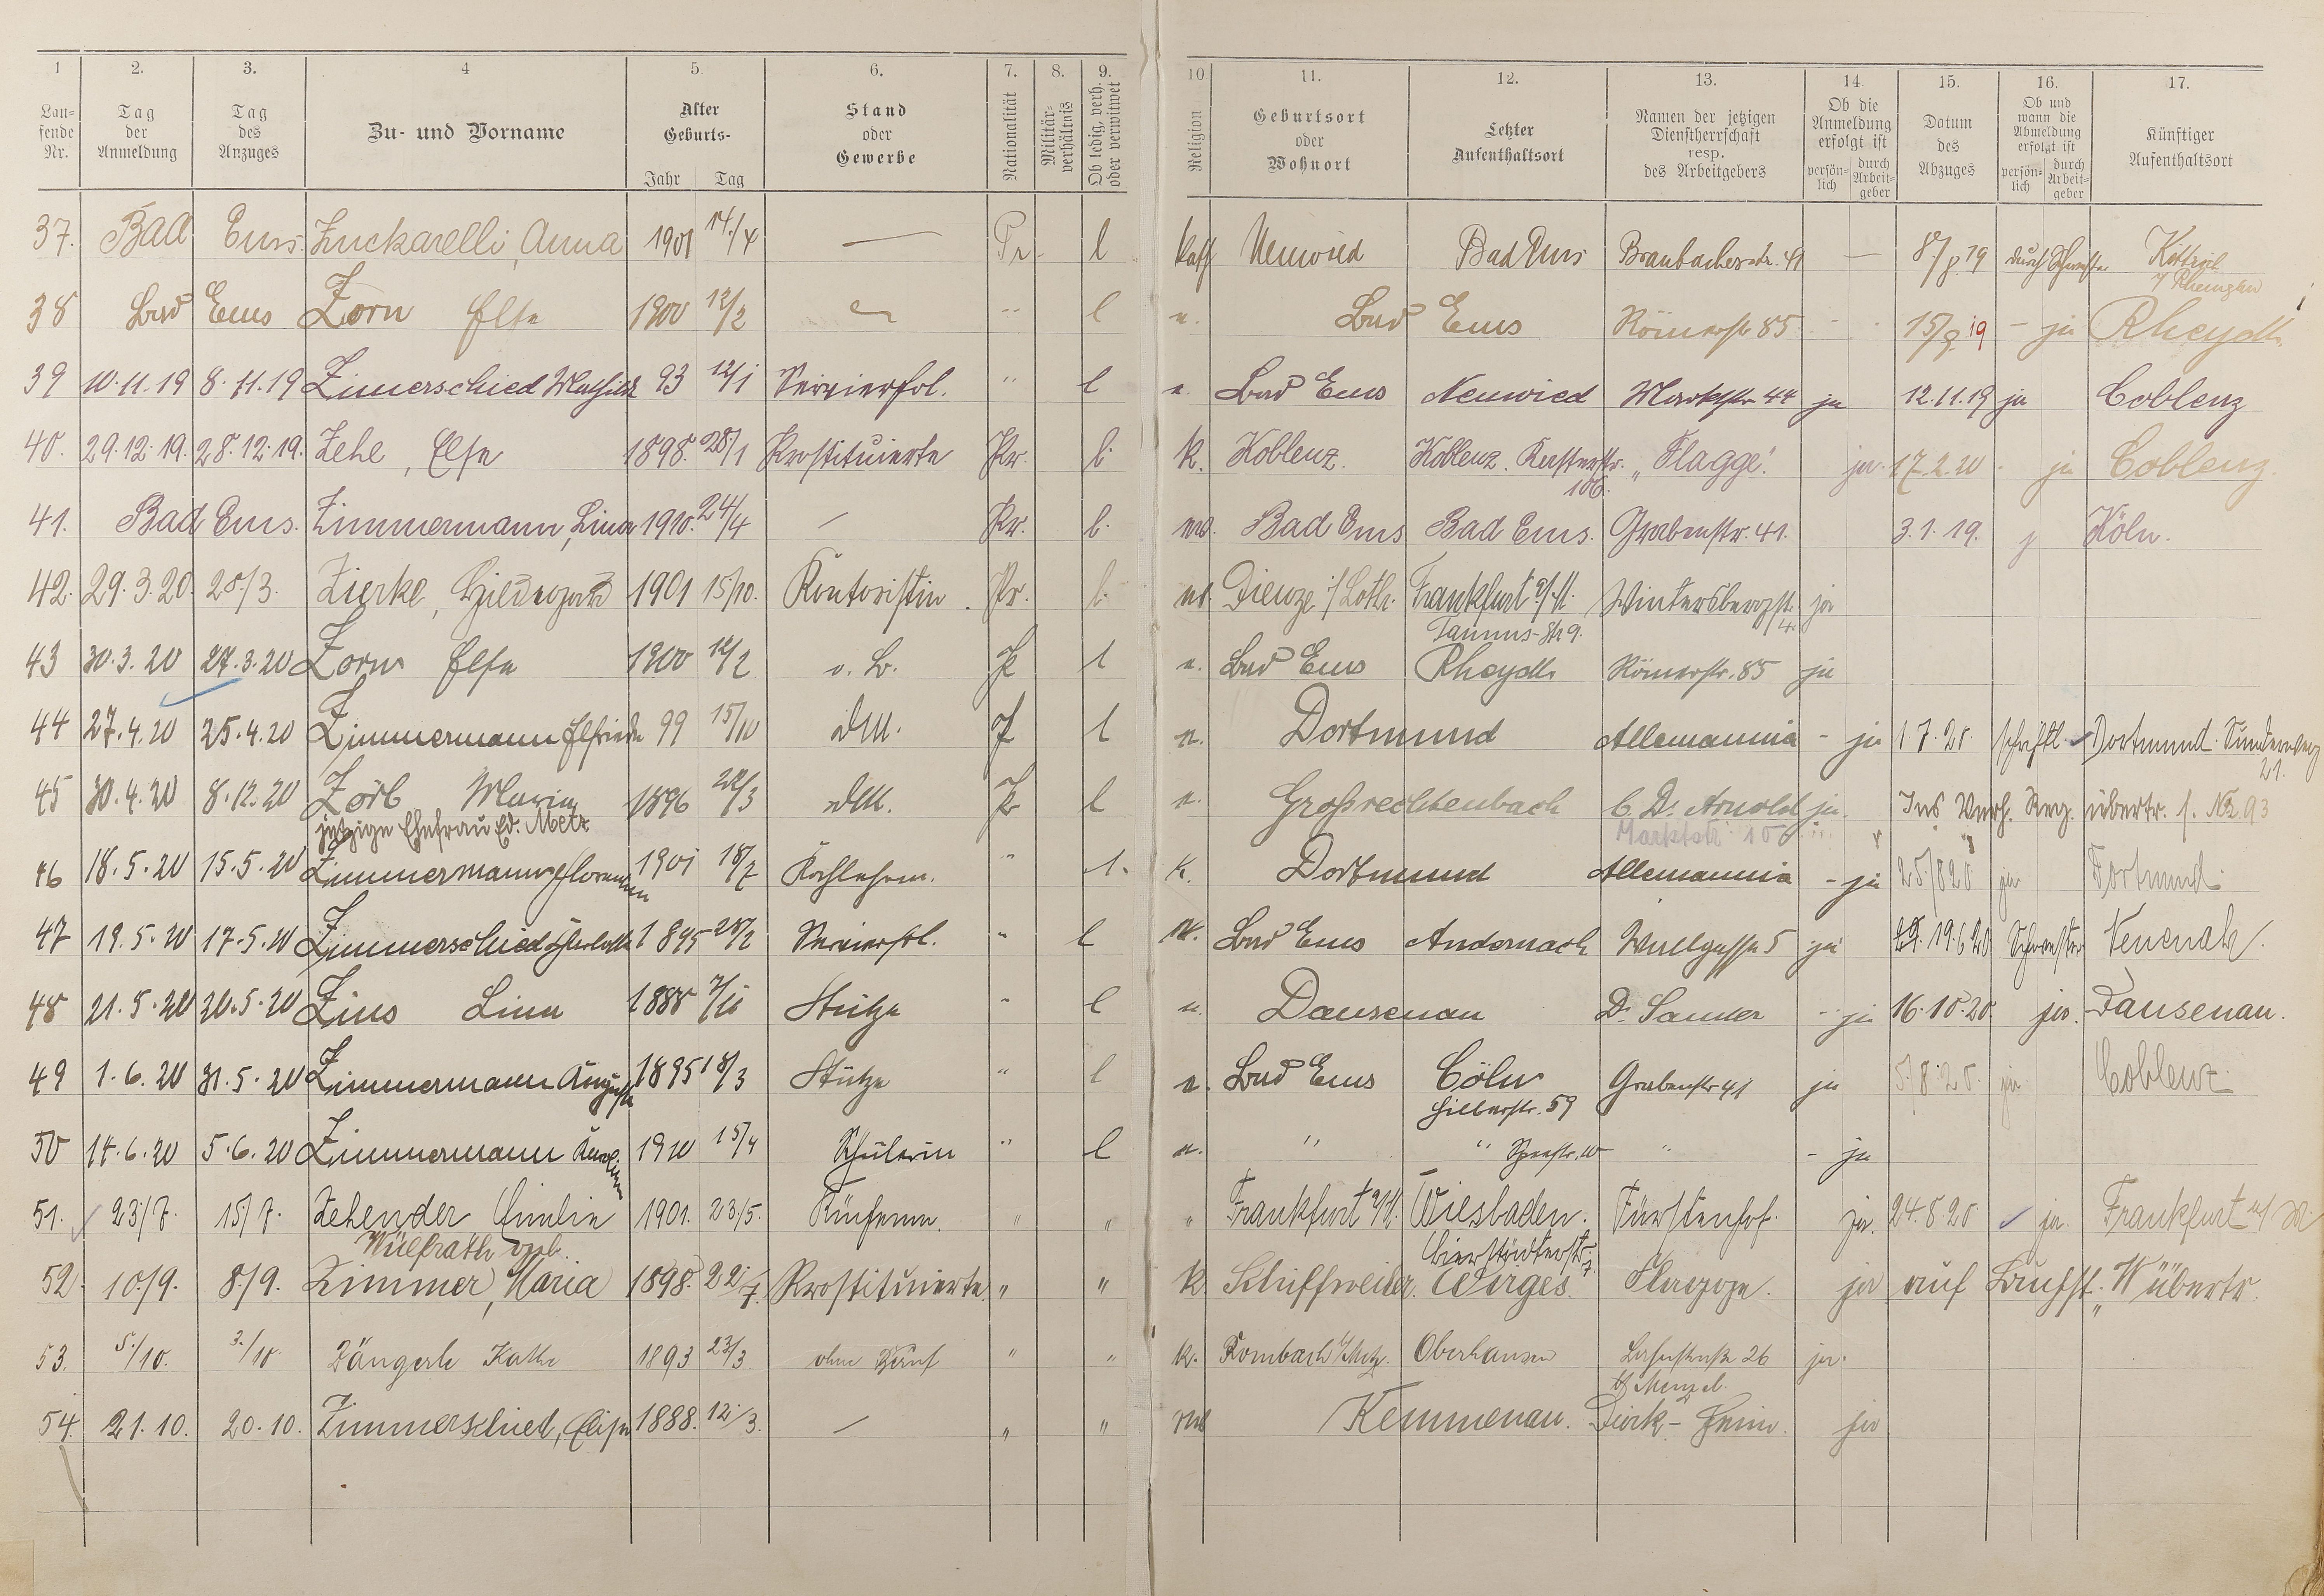 1 2. 3. 4 5. 6. 7. 8. 9. 10 11. 12. 13. 14. 15. 16. 17.
Lau-
fende
Nr.
Tag
der
Anmeldung
Tag
des
Anzuges
Zu- und Vorname
Alter
Geburts-
Jahr Tag
Stand
oder
Gewerbe
Nationalität
Militär-
verhältnis
Ob ledig, verh.
oder verwitwet
Religion
Geburtsort
oder
Wohnort
Letzter
Aufenthaltsort
Namen der jetzigen
Dienstherrschaft
resp.
des Arbeitgebers
Ob die
Anmeldung
erfolgt ist
persön-
lich
durch
Arbeit-
geber
Datum
des
Abzuges
Ob und
wann die
Abmeldung
erfolgt ist
persön-
lich
durch
Arbeit-
geber
Künftiger
Aufenthaltsort
37. Bad Ems. Zuckarelli, Anna 1901 14./4 — Pr. l kath Neuwied Bad Ems Braubacherstr. 41 — 8/8.19 durch
i/ Rheingau
38 Bad Ems Zorn Else 1900 12/2 — " l e. Bad Ems Römerstr 85 - - 15/9.19 - ja Rheydt.
39 10.11.19 8.11.19 Zimerschied Mathilde 93 12/1 Servierfrl. " l e. Bad Ems Neuwied Marktstr 44 ja 12.11.19 ja Coblenz
40. 29.12.19. 28.12.19. Zehe, Else 1898. 28./1 Prostituierte Pr. l. k. Koblenz. Koblenz. "Flagge". ja. 17.2.20 - ja Coblenz.
106.
41. Bad Ems. Zimmermann, Lina 1910. 24/4 / Pr. l. ev. Bad Ems Bad Ems. Grabenstr. 41. 3.1.19. j Köln.
42. 29.3.20. 28/3. Zierke, Hildegard 1901 15/10. Kontoristin. Pr. l. ev. Dieuze i/ Loth. Frankfurt a/M. Wintersbergstr. ja
Taunus-Str 9. 4.
43 30.3.20 27.3.20 Zorn Else 1900 12/2 o. B. P l e. Bad Ems Rheydt Römerstr. 85 ja
44 27.4.20 25.4.20 Zimmermann Elfriede 99 15/10 P l e. Dortmund Allemannia - ja 1.7.20. schriftl. Dortmund. Sunderweg
21.
45 30.4.20 8.12.20 Zörb Maria 1896 22/3 P l e. Großrechtenbach C. Dr. Arnold ja. Ins Verh. Reg. übertr. s. No. 93
jetzige Ehefrau Ed. Metz. Marktstr. 10
46 18.5.20 15.5.20 Zimmermann 1901 18/7 Kochlehrn. " l. k. Dortmund Allemannia - ja 25/8 20 ja Dortmund.
47 19.5.20 17.5.20 Zimmerschied Charlotte 1895 28/2 Servierfrl. " l ev. Bad Ems Andernach Wallgasse 5 ja 19.6.20 Schwester Neuenahr.
48 21.5.20 20.5.20 Zins Lina 1888 Stütze " l e. Dausenau Dr. Sander - ja 16.10.20. ja. Dausenau.
49 1.6.20 31.5.20 Zimmermann Auguste 1895 18/3 Stütze " l e. Bad Ems Cöln Grabenstr 41 ja 5.8.20. ja Coblenz
50 14.6.20 5.6.20 Zimmermann 1910 15/4 Schülerin " l e. " " " - ja
51. 23./7. 15/7. Zehender Emilie 1901. 23./5. " " " Frankfurt a/M. Wiesbaden. Fürstenhof. ja. 24.8.20. ja. Frankfurt a/M
Wülfrath
Bierstädterstr.
7.
52. 10./9. 8./9. Zimmer, Maria 1898. 22./7. Prostituierte " " k. Schiffweiler. Wirges. Flagge. ja auf "W" übertr.
53. 5./10. 3./10. Zängerle Käthe 1893 23/3. ohne Beruf " " k. Rombach b/Metz. Oberhausen Lahnstraße 26 ja.
b/ Menzel.
54. 21.10. 20.10. Zimmerschied, Elise 1888. 12./3. / " " ev Kemmenau. ja